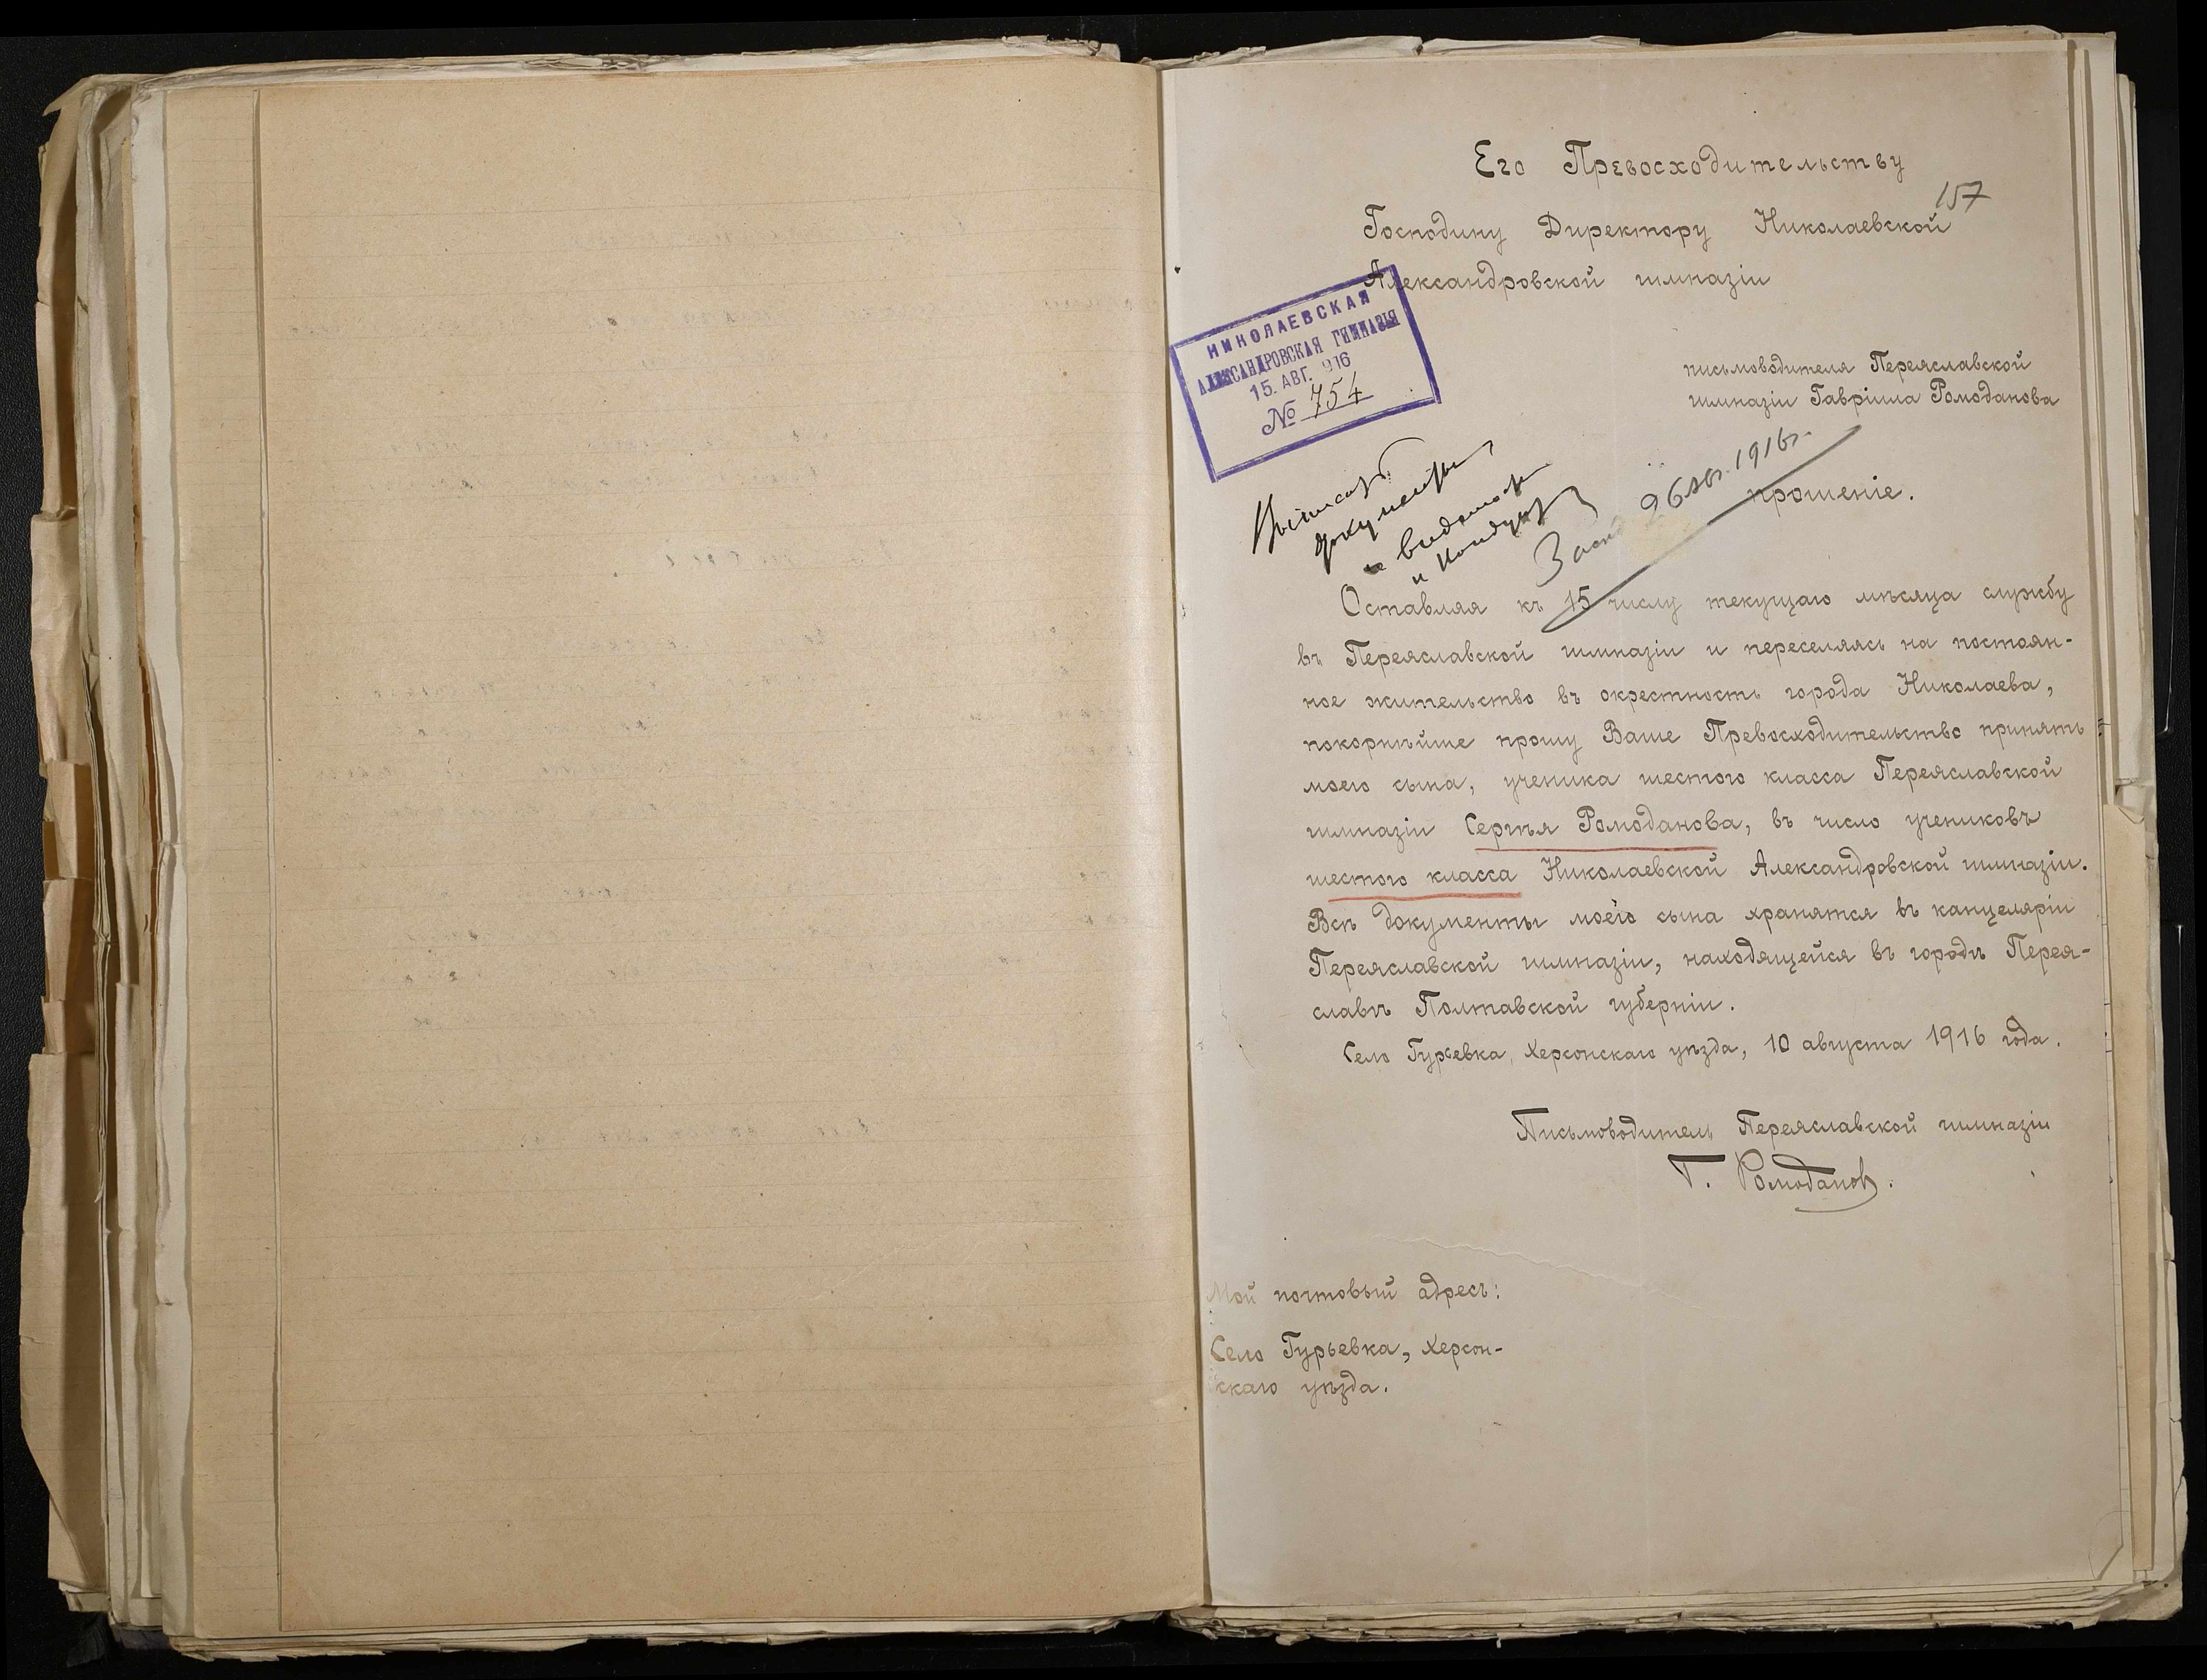 Его Превосходительству
157
Господину Директору Николаевской
Александровской гимназіи
НИКОЛАЕВСКАЯ
АЛЕКСАНДРОВСКАЯ ГИМНАЗІЯ
15. АВГ. 916
№ 754
письмоводителя Переяславской
гимназіи Гавріила Ромоданова
документы
и кондуит
26 авг. 1916 г.
прошеніе.
Оставляя къ 15 числу текущаго мѣсяца службу
въ Переяславской гимназіи и переселяясь на постоян-
ное жительство въ окрестность города Николаева,
покорнѣйше прошу Ваше Превосходительство принять
моего сына, ученика шестого класса Переяславской
гимназіи Сергѣя Ромоданова, въ число учениковъ
шестого класса Николаевской Александровской гимназіи.
Всѣ документы моего сына хранятся въ канцеляріи
Переяславской гимназіи, находящейся въ городѣ Перея-
славѣ Полтавской губерніи.
Село Гурьевка, Херсонскаго уѣзда, 10 августа 1916 года.
Письмоводитель Переяславской гимназіи
Г. Ромодановъ.
Мой почтовый адресъ:
Село Гурьевка, Херсон-
скаго уѣзда.